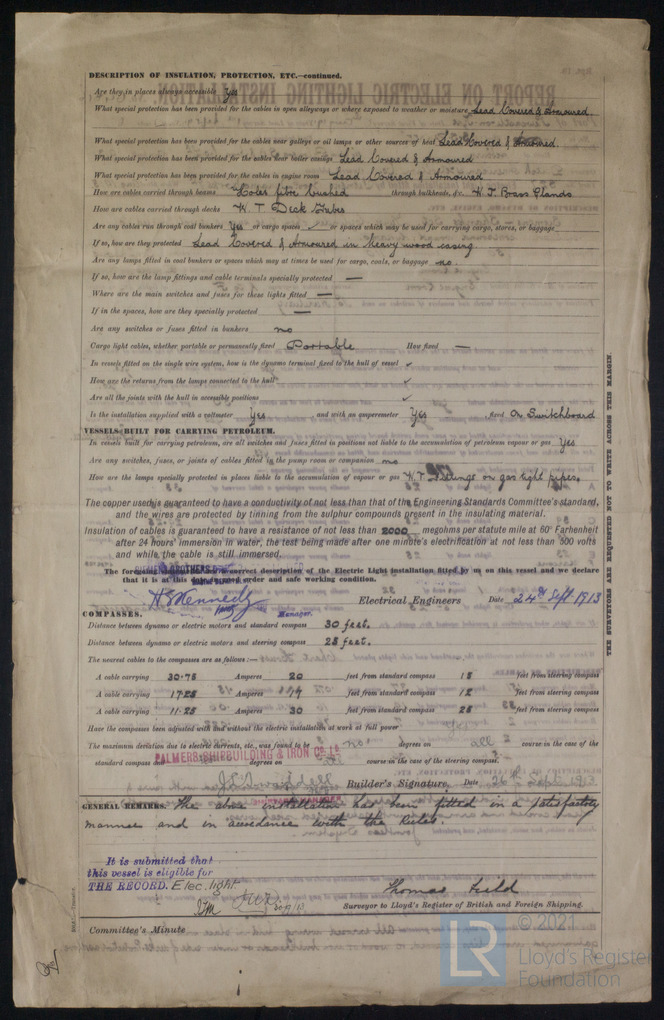 DESCRIPTION OF INSULATION, PROTECTION, ETC.—continued.
Are they in places always accessible Yes
What special protection has been provided for the cables in open alleyways or where exposed to weather or moisture Lead Covered & Armoured.
What special protection has been provided for the cables near galleys or oil lamps or other sources of heat Lead Covered & Armoured.
What special protection has been provided for the cables near boiler casings Lead Covered & Armoured
What special protection has been provided for the cables in engine room Lead Covered & Armoured
How are cables carried through beams Holes fibre bushed through bulkheads, &c. W.T. Brass Glands
How are cables carried through decks W.T. Deck Tubes
Are any cables run through coal bunkers Yes or cargo spaces ✓ or spaces which may be used for carrying cargo, stores, or baggage
If so, how are they protected Lead Covered & Armoured in heavy wood casing
Are any lamps fitted in coal bunkers or spaces which may at times be used for cargo, coals, or baggage no.
If so, how are the lamp fittings and cable terminals specially protected —
Where are the main switches and fuses for these lights fitted —
If in the spaces, how are they specially protected —
Are any switches or fuses fitted in bunkers no
Cargo light cables, whether portable or permanently fixed Portable How fixed —
In vessels fitted on the single wire system, how is the dynamo terminal fixed to the hull of vessel ✓
How are the returns from the lamps connected to the hull ✓
Are all the joints with the hull in accessible positions ✓
Is the installation supplied with a voltmeter Yes and with an amperemeter Yes, fixed on Switchboard
VESSELS BUILT FOR CARRYING PETROLEUM.
In vessels built for carrying petroleum, are all switches and fuses fitted in positions not liable to the accumulation of petroleum vapour or gas Yes
Are any switches, fuses, or joints of cables fitted in the pump room or companion no
How are the lamps specially protected in places liable to the accumulation of vapour or gas W.T. fittings on gas tight pipes.
The copper used is guaranteed to have a conductivity of not less than that of the Engineering Standards Committee's standard,
and the wires are protected by tinning from the sulphur compounds present in the insulating material.
Insulation of cables is guaranteed to have a resistance of not less than 2000 megohms per statute mile at 60° Farhenheit
after 24 hours' immersion in water, the test being made after one minute's electrification at not less than 500 volts
and while the cable is still immersed.
The foregoing is a correct description of the Electric Light installation fitted by us on this vessel and we declare
that it is at this date in good order and safe working condition.
BROTHERS
Kennedy
Manager.
Electrical Engineers Date 24th Sept 1913
COMPASSES.
Distance between dynamo or electric motors and standard compass 30 feet.
Distance between dynamo or electric motors and steering compass 25 feet.
The nearest cables to the compasses are as follows:—
A cable carrying 30.75 Amperes 20 feet from standard compass 15 feet from steering compass
A cable carrying 17.25 Amperes feet from standard compass 12 feet from steering compass
A cable carrying 11.25 Amperes 30 feet from standard compass 25 feet from steering compass
Have the compasses been adjusted with and without the electric installation at work at full power
The maximum deviation due to electric currents, etc., was found to be degrees on all course in the case of the
standard compass and degrees on course in the case of the steering compass.
PALMERS SHIPBUILDING & IRON CO. LD
Builder's Signature. Date
GENERAL REMARKS. The above installation has been fitted in a satisfactory
manner and in accordance with the Rules.
It is submitted that
this vessel is eligible for
THE RECORD. Elec. light.
30/9/13
Thomas Field
Surveyor to Lloyd's Register of British and Foreign Shipping.
Committee's Minute
THE SURVEYORS ARE REQUESTED NOT TO WRITE ACROSS THIS MARGIN.
REPORT ON ELECTRIC LIGHTING INSTALLATION
LR
© 2021
Lloyd's Register
Foundation